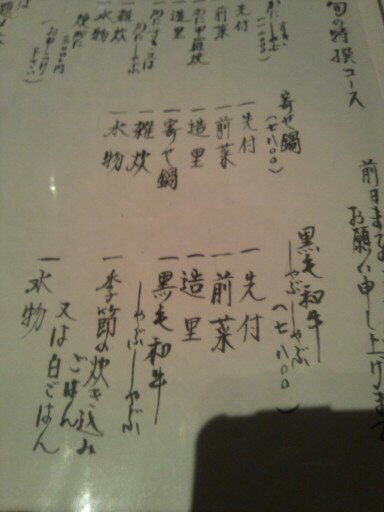 旬の特撰コース
前日まで
お願い申し上げま
先付
一前菜
一造里
一雑炊
一水物
寄せ鍋
(七八〇〇)
一先付
一前菜
一造里
一寄せ鍋
一雑炊
一水物
黒毛和牛
しゃぶしゃぶ
(七八〇〇)
一先付
一前菜
一造里
一黒毛和牛
しゃぶしゃぶ
一季節の炊き込み
ごはん
又は白ごはん
一水物